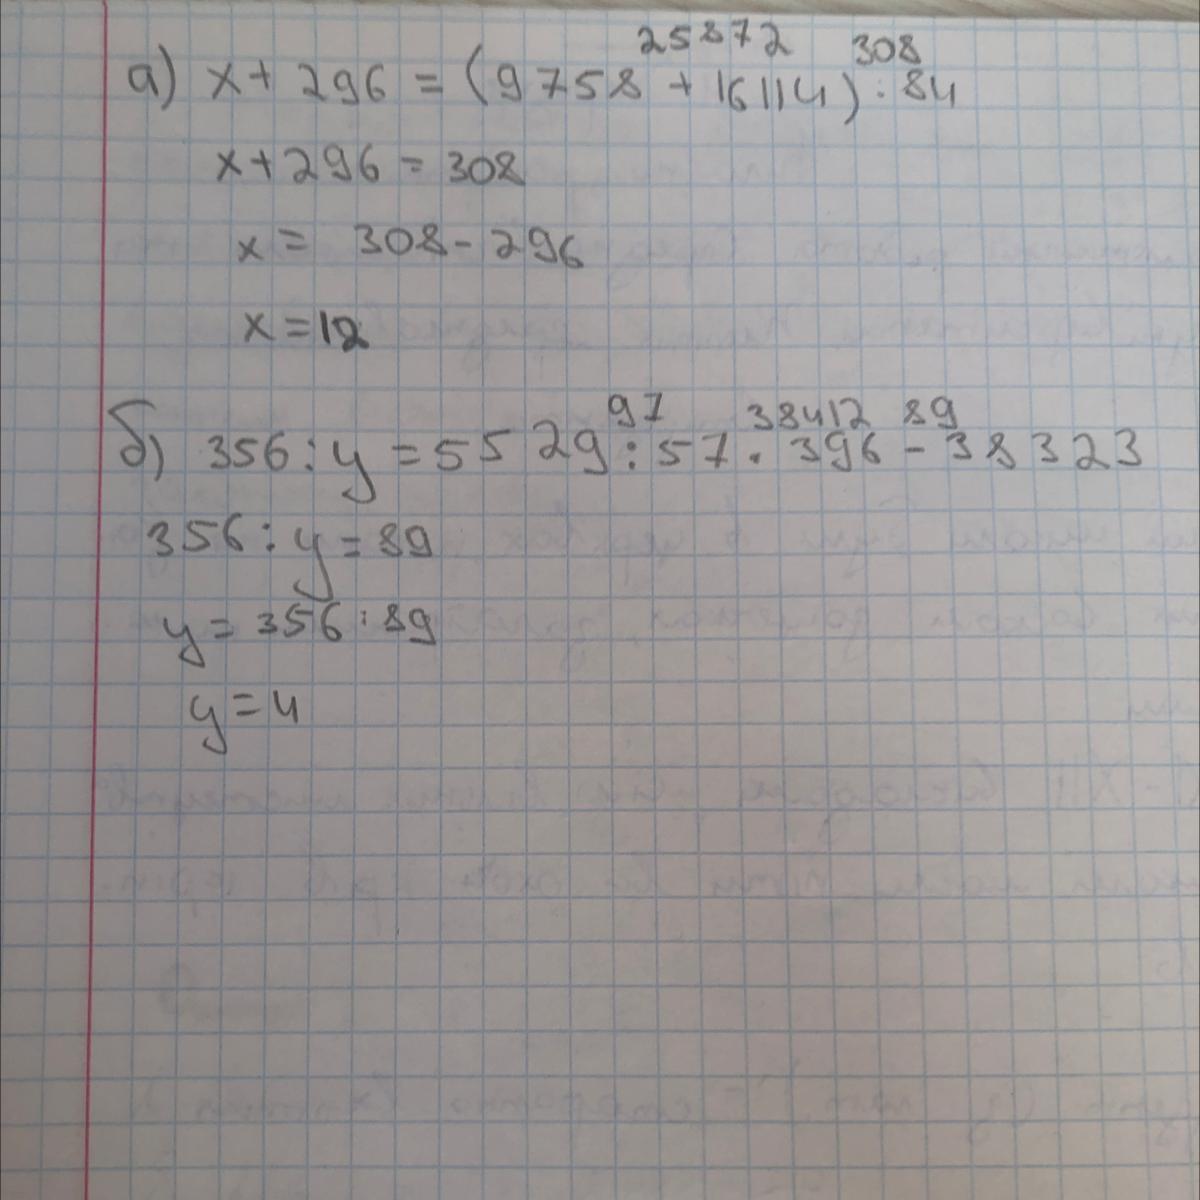 25872 308
а) x + 296 = (9758 + 16114) : 84
x + 296 = 308
x = 308 - 296
x = 12
97 38412 89
б) 356 : y = 5529 : 57 . 396 - 38323
356 : y = 89
y = 356 : 89
y = 4